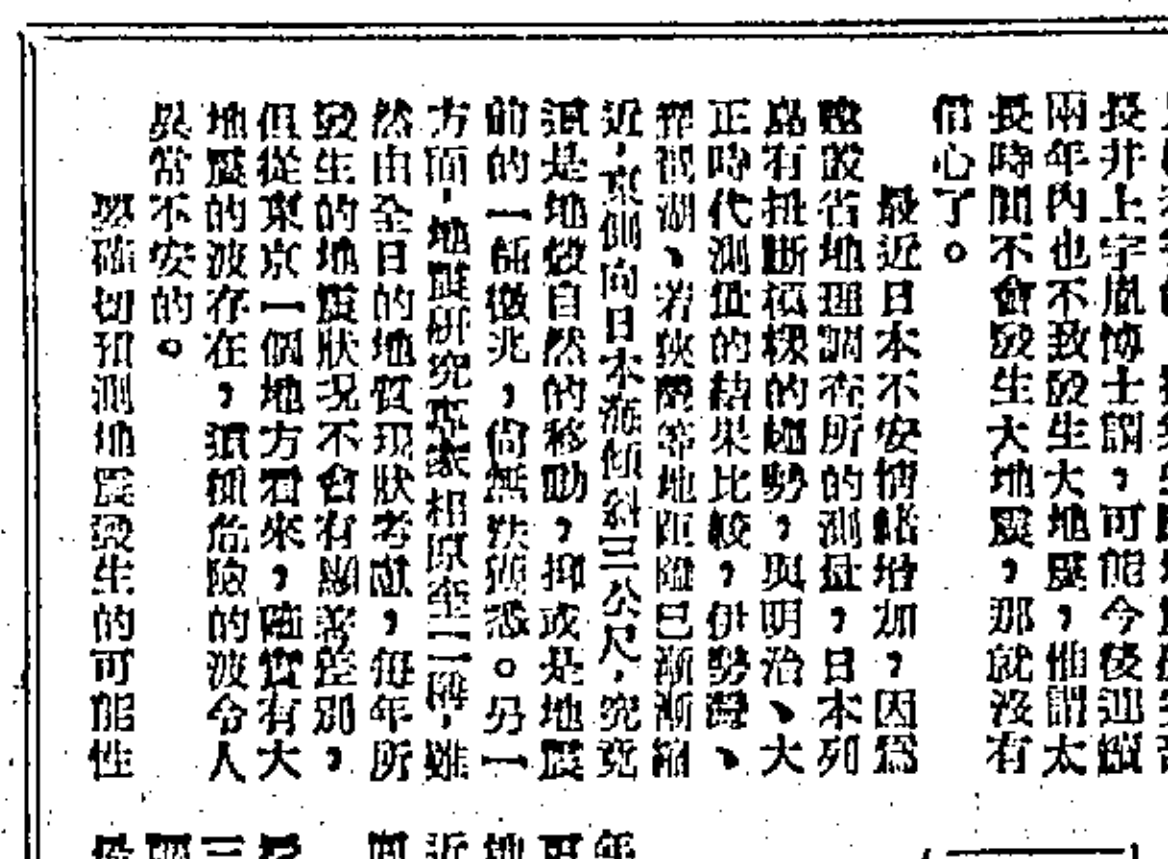 長井上宇胤博士謂，可能今後連續
兩年內也不致發生大地震，惟謂太
長時間不會發生大地震，那就沒有
信心了。
最近日本不安情緒增加，因為
建設省地理調查所的測量，日本列
島有折斷模樣的趨勢，與明治、大
正時代測量的結果比較，伊勢灣、
琵琶湖、若狹灣等地距離已漸漸縮
近，東側向日本海傾斜三公尺，究竟
這是地殼自然的移動，抑或是地震
前的一種徵兆，尚無法獲悉。另一
方面，地震研究專家相原奎二稱，雖
然由全日的地質現狀考慮，每年所
發生的地震狀況不會有顯著差別，
但從東京一個地方看來，確實有大
地震的波存在，這種危險的波令人
異常不安的。
要確切預測地震發生的可能性